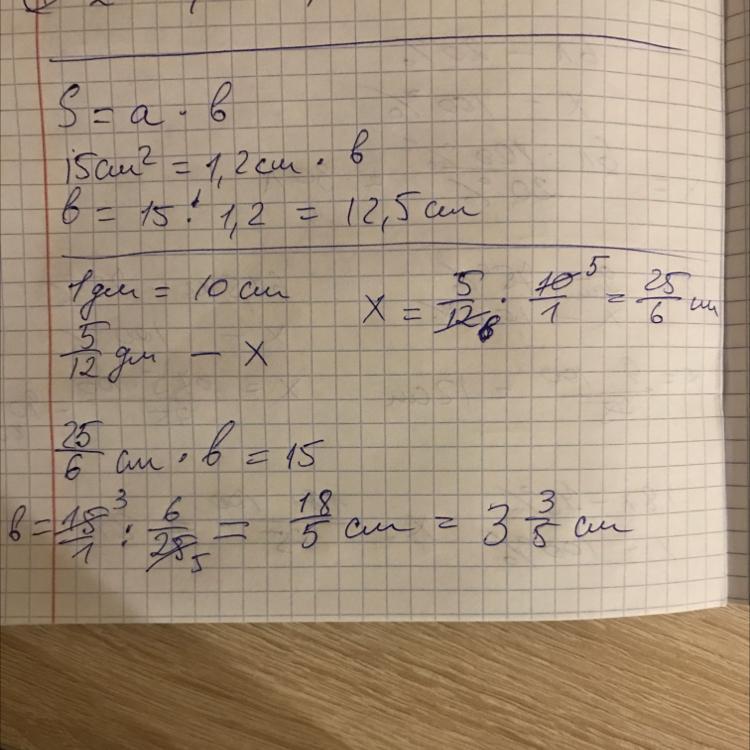 S = a · в
15 см² = 1,2 см · в
в = 15 : 1,2 = 12,5 см
1 дм = 10 см
5/12 дм — x
x = 5/12 6 : 10/1 5 = 25/6 см
25/6 см · в = 15
в = 15/1 3 : 6/25 5 = 18/5 см = 3 3/5 см